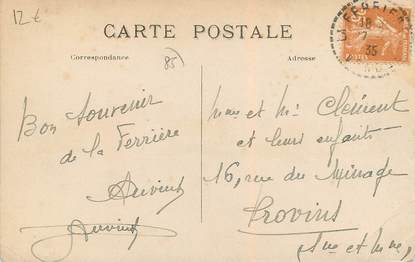 12€
CARTE POSTALE
Correspondance
85)
Adresse
FERRIÈRE
18
35
Bon Souvenir
de la Ferrière
Auvinet
Auvinet
Mme et Mr Clément
et leurs enfants
16, rue du Minage
Provins
(Sne et Mne)